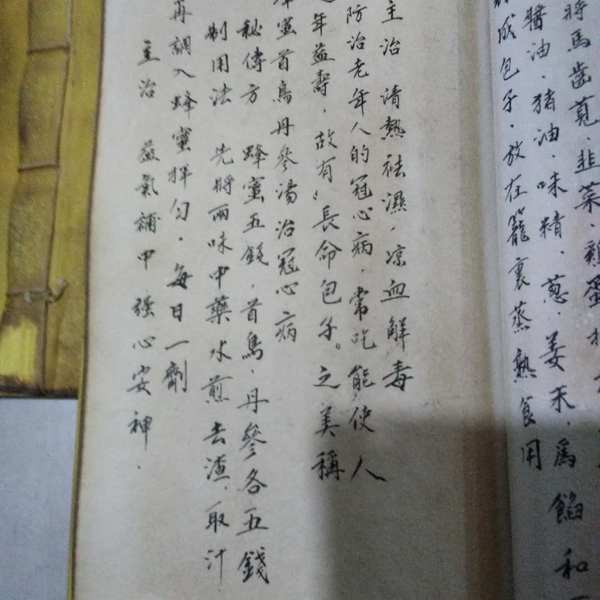 將馬齒莧、韭菜、雞蛋
醬油、豬油、味精、蔥、姜末、爲餡和
成包子、放在籠裏蒸熟食用
主治 清熱祛濕、凉血解毒
防治老年人的冠心病、常吃能使人
年益壽、故有“長命包子。之美稱
蜜首烏丹參湯治冠心病
秘傳方 蜂蜜五錢、首烏、丹參各五錢
制用法 先將兩味中藥水煎去渣、取汁
再調入蜂蜜拌勻、每日一劑
主治 益氣補中强心安神.